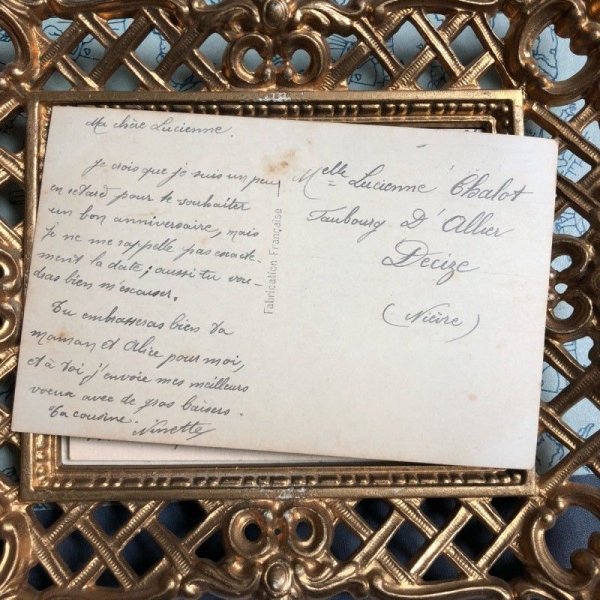 Ma chère Lucienne.
Je crois que je suis un peu
en retard pour te souhaiter
un bon anniversaire, mais
je ne me rappelle pas exacte-
ment la date; aussi tu vou-
dras bien m'excuser.
Tu embrasseras bien ta
maman et Alice pour moi,
et à toi j'envoie mes meilleurs
voeux avec de gros baisers.
Ta cousine. Ninette
Fabrication Française
Melle Lucienne Chalot
Faubourg D'Allier
Decize
(Nièvre)